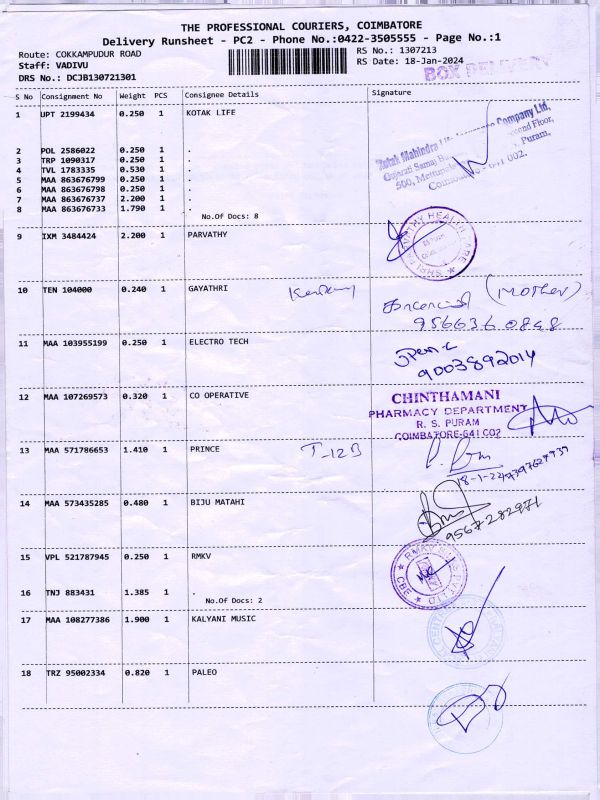 THE PROFESSIONAL COURIERS, COIMBATORE
Delivery Runsheet - PC2 - Phone No.:0422-3505555 - Page No.:1
Route: COKKAMPUDUR ROAD
RS No.: 1307213
Staff: VADIVU
RS Date: 18-Jan-2024
DRS No.: DCJB130721301
BOX DELIVERY
S No Consignment No Weight PCS Consignee Details Signature
1 UPT 2199434 0.250 1 KOTAK LIFE
Kotak Mahindra Life Insurance Company Ltd,
2 POL 2586022 0.250 1 .
3 TRP 1090317 0.250 1 .
4 TVL 1783335 0.530 1 .
5 MAA 863676799 0.250 1 .
6 MAA 863676798 0.250 1 .
7 MAA 863676737 2.200 1 .
8 MAA 863676733 1.790 1 .
No.Of Docs: 8
9 IXM 3484424 2.200 1 PARVATHY
10 TEN 104000 0.240 1 GAYATHRI
(Mother)
956636 0848
11 MAA 103955199 0.250 1 ELECTRO TECH
9003892014
12 MAA 107269573 0.320 1 CO OPERATIVE
CHINTHAMANI
PHARMACY DEPARTMENT
R. S. PURAM
COIMBATORE-641 002
13 MAA 571786653 1.410 1 PRINCE T-12B
18-1-24
14 MAA 573435285 0.480 1 BIJU MATAHI
9567282971
15 VPL 521787945 0.250 1 RMKV
16 TNJ 883431 1.385 1 .
No.Of Docs: 2
17 MAA 108277386 1.900 1 KALYANI MUSIC
18 TRZ 95002334 0.820 1 PALEO